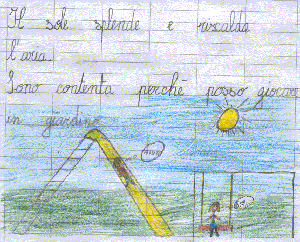 Il sole splende e riscalda
l'aria.
Sono contenta perchè posso giocare
in giardino